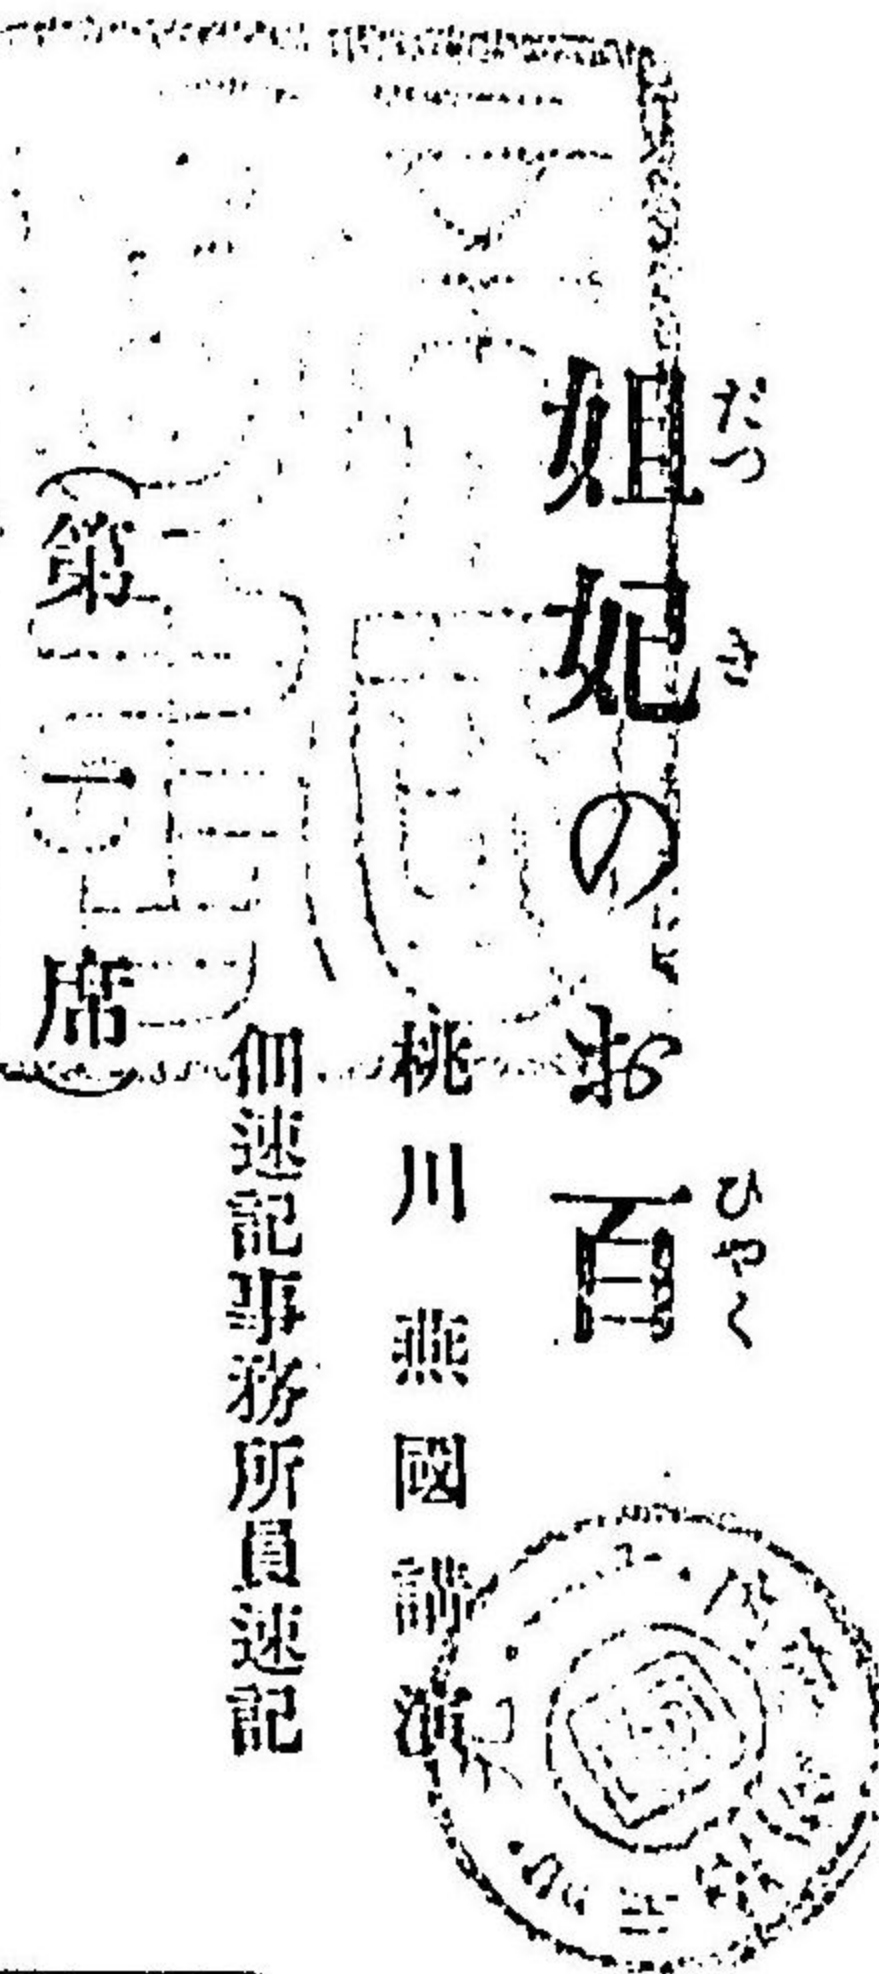 妲妃のお百
だつき
ひやく
桃川燕國講演
佃速記事務所員速記
(第一席)